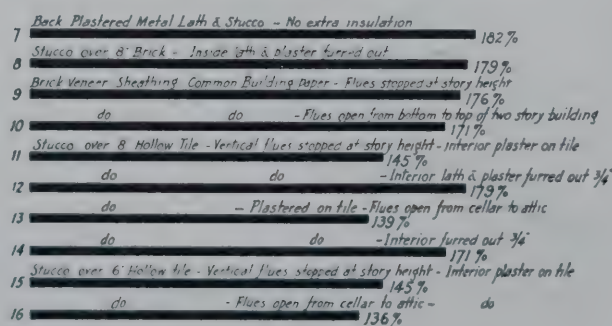 Back Plastered Metal Lath & Stucco - No extra insulation
7 182%
Stucco over 8" Brick - Inside lath & plaster furred out
8 179%
Brick Veneer Sheathing Common Building paper - Flues stopped at story height
9 176%
do do - Flues open from bottom to top of two story building
10 171%
Stucco over 8 Hollow Tile - Vertical flues stopped at story height - interior plaster on tile
11 145%
do do - Interior lath & plaster furred out 3/4"
12 179%
do - Plastered on tile - Flues open from cellar to attic
13 139%
do do - Interior furred out 3/4"
14 171%
Stucco over 6" Hollow tile - Vertical flues stopped at story height - Interior plaster on tile
15 145%
do - Flues open from cellar to attic - do
16 136%